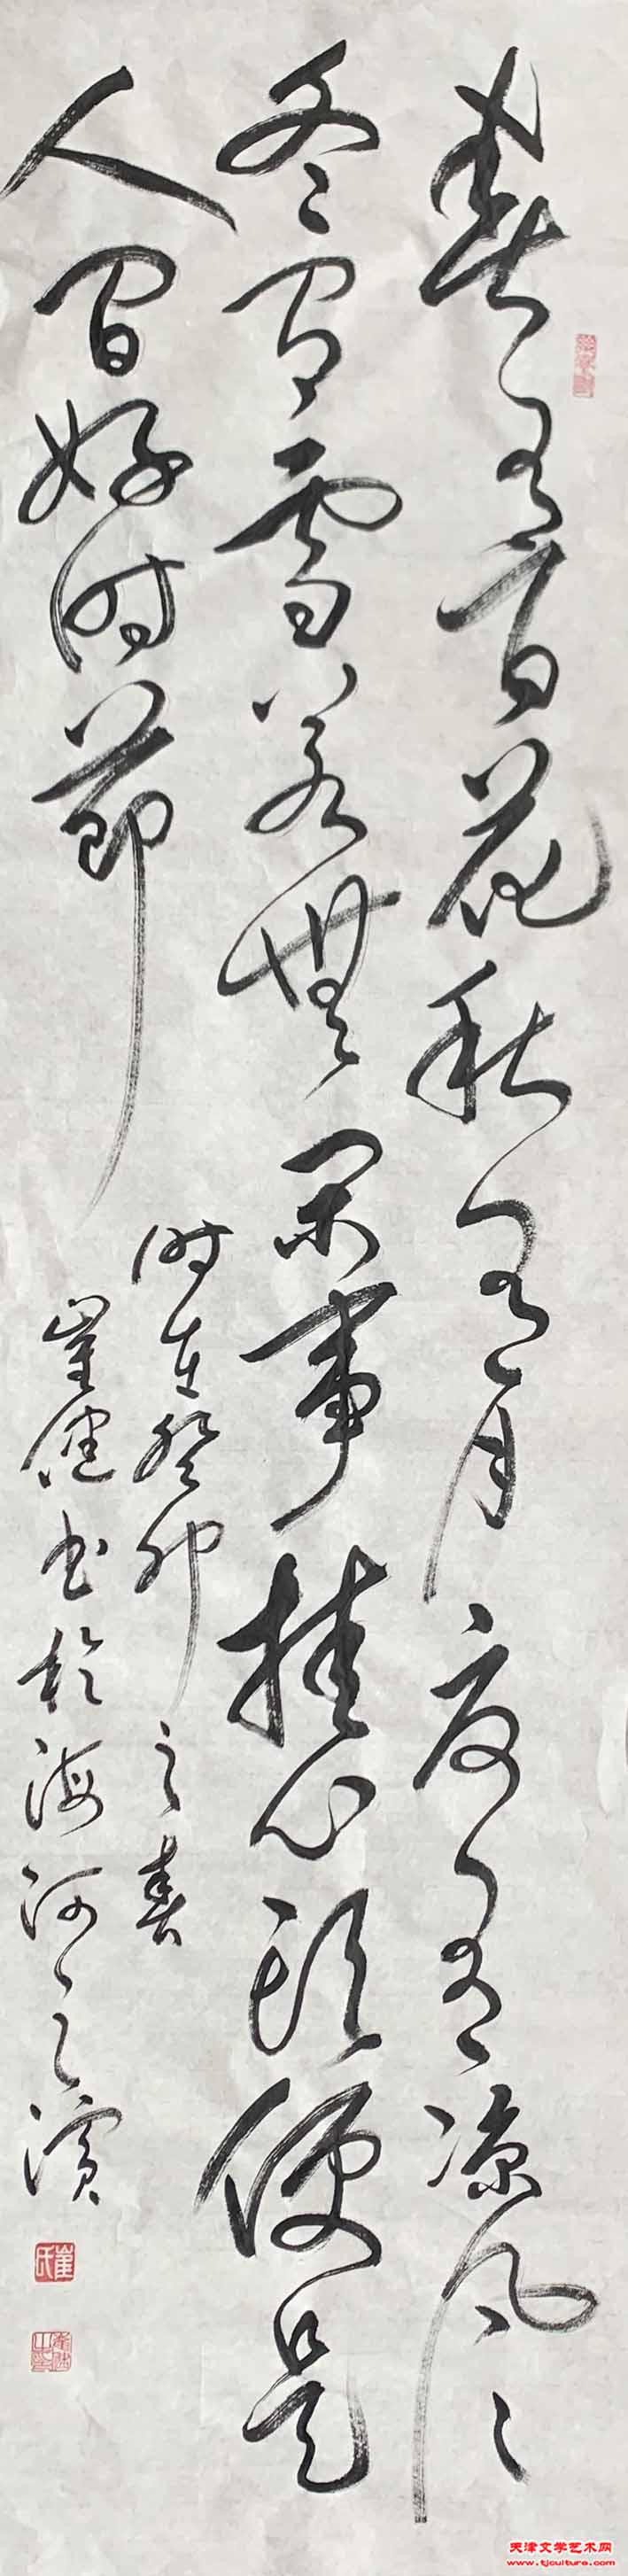 春有百花秋有月夏有凉风
冬有雪若無闲事挂心头便是
人间好时节
时在癸卯之春
崔健书於海河之滨
崔氏
天津文学艺术网
www.tjculture.com